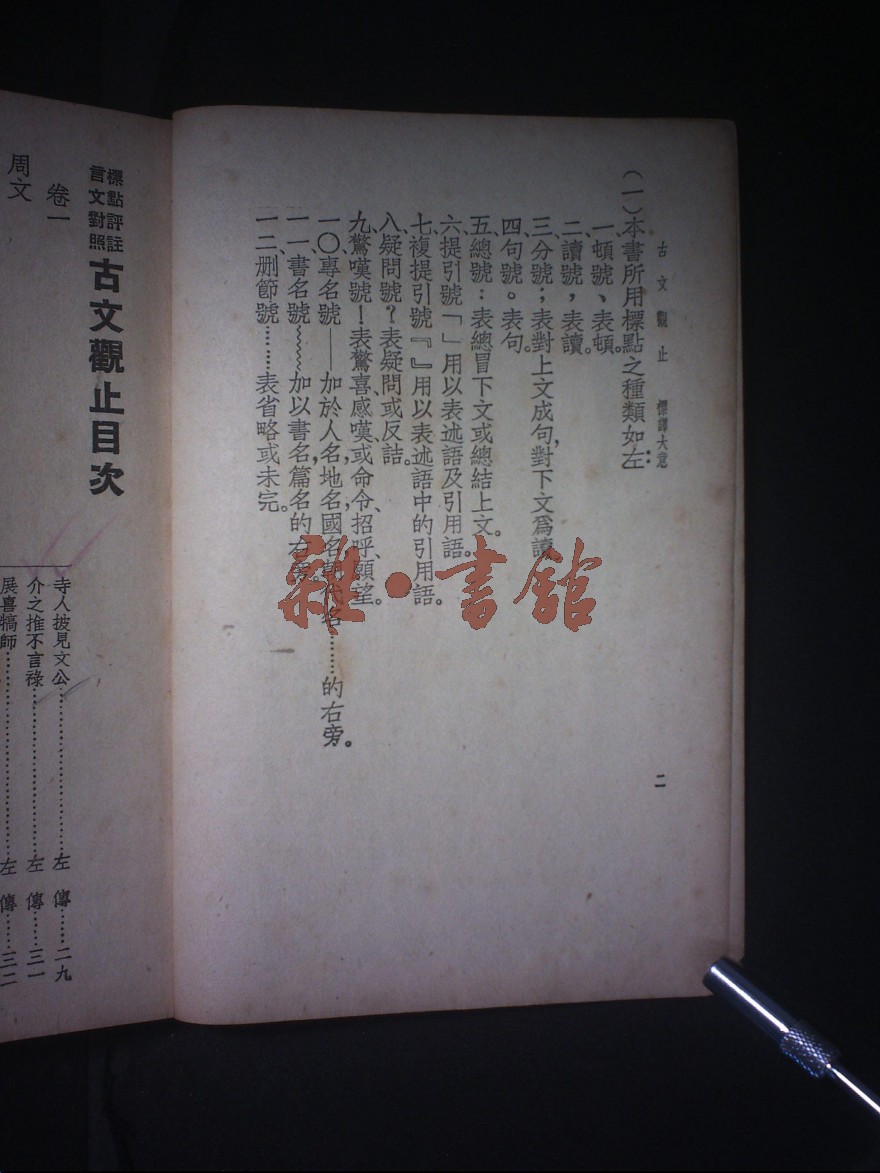 古文觀止　標譯大意　二
（一）本書所用標點之種類如左：
一、頓號、表頓。
二、讀號，表讀。
三、分號；表對上文成句，對下文爲讀。
四、句號。表句。
五、總號：表總冒下文或總結上文。
六、提引號「」用以表述語及引用語。
七、複提引號『』用以表述語中的引用語。
八、疑問號？表疑問或反詰。
九、驚嘆號！表驚喜、感嘆或命令、招呼、願望。
一〇、專名號——加於人名，地名，國名，朝代名……的右旁。
一一、書名號﹏﹏加以書名，篇名的右旁。
一二、刪節號……表省略或未完。
標點評註
言文對照
古文觀止目次
卷一
周文
寺人披見文公……左傳……二九
介之推不言祿……左傳……三一
展喜犒師……左傳……三二
雜·書館